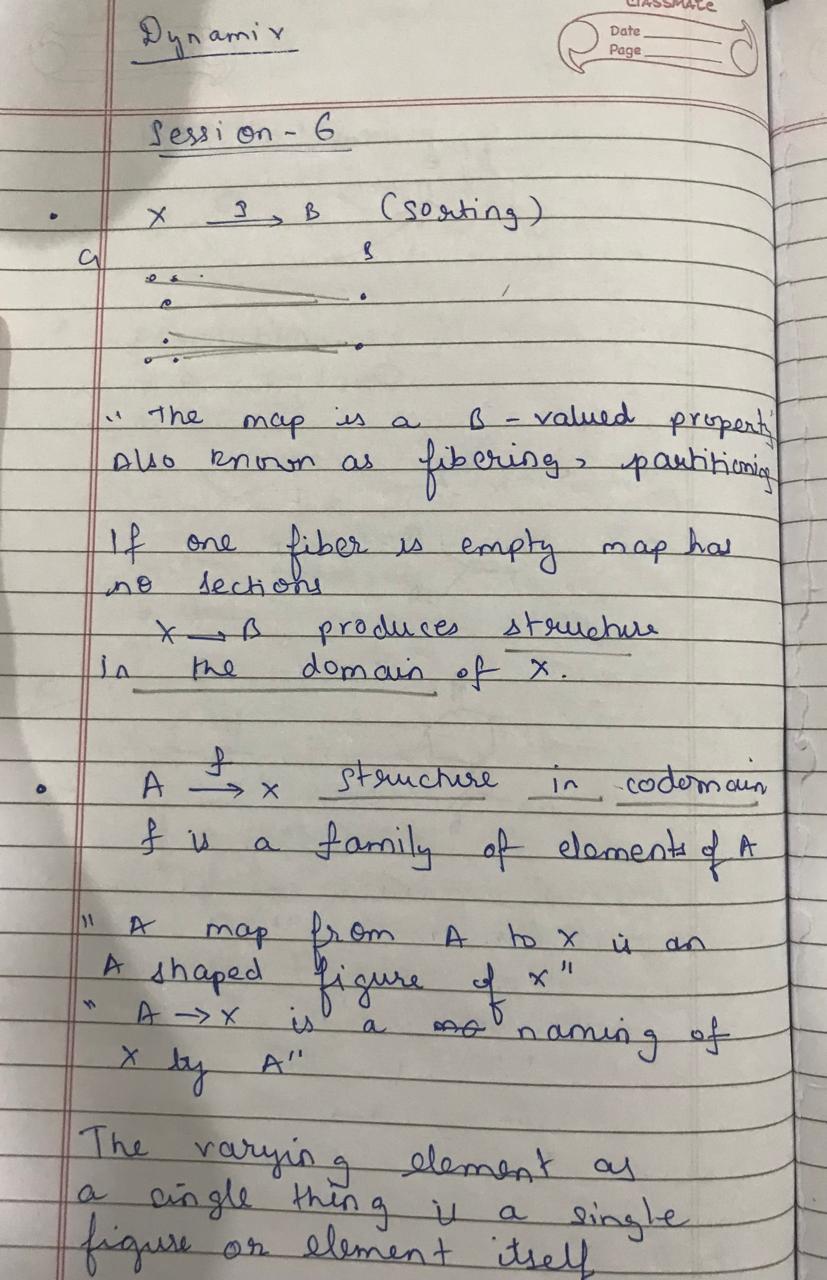 CLASSMATE
Date
Page
Dynamix
Session - 6
X → B (Sorting)
B
" The map is a B - valued property
Also known as fibering, partitioning
If one fiber is empty map has
no sections
X → B produces structure
in the domain of X.
A f→ X structure in codomain
f is a family of elements of A
" A map from A to X is an
A shaped figure of X"
" A → X is a naming of
X by A"
The varying element as
a single thing is a single
figure or element itself